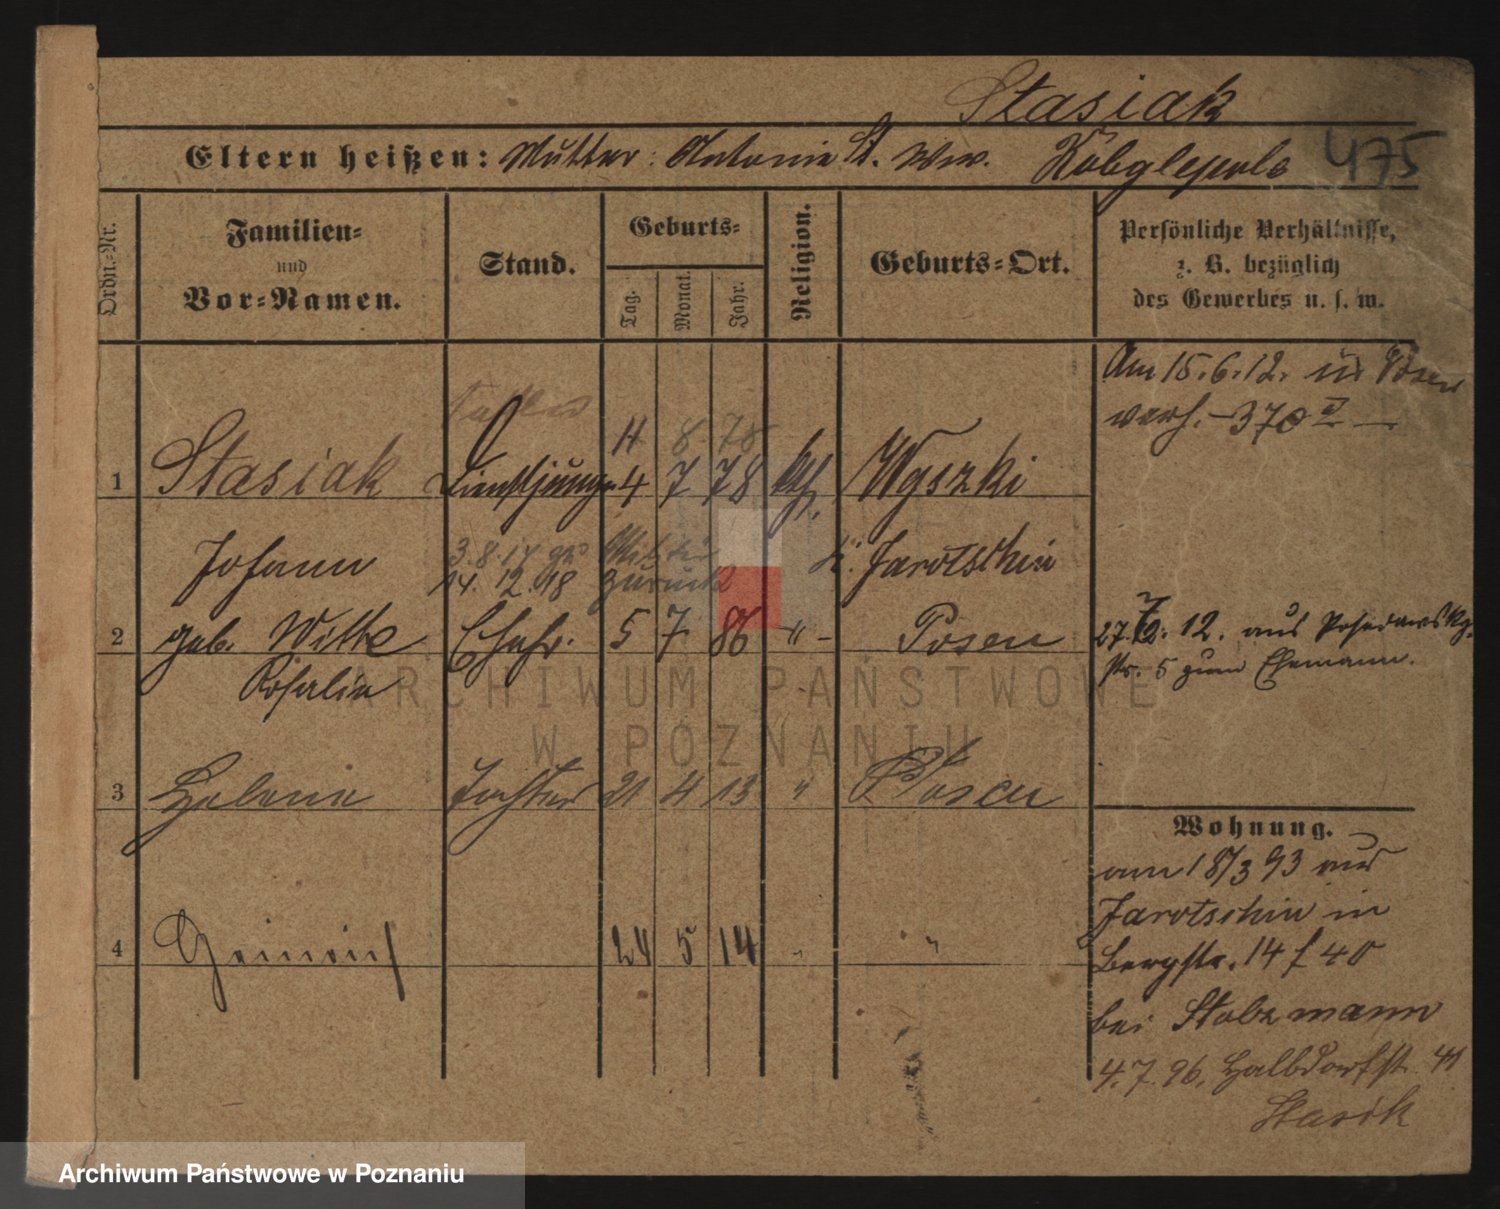 Stasiak
Eltern heißen: Mutter: Antonie St. Ww.
475
Ordn.-Nr.
Familien-
und
Vor-Namen.
Stand.
Geburts-
Tag.
Monat.
Jahr.
Religion.
Geburts-Ort.
Persönliche Verhältnisse,
z. B. bezüglich
des Gewerbes u. s. w.
Am 15.6.12. in Posen
verh. - 370
8. 78
1 Stasiak Dienstjunge 4 7 78 kth. Wyszki
Johann K. Jarotschin
3.8.17 zu Militär
14.12.18 zurück
2 geb. Witke Ehefr. 5 7 86 -"- Posen
Rosalie
27. 12. aus
Str. 5 zum Ehemann.
3 Helene Tochter 21 4 13 " Posen
Wohnung.
am 18/3 93 aus
Jarotschin in
Bergstr. 14 f 40
bei Stolzmann
4.7.96. Halbdorfstr.
4 Heinrich 24 5 14 " "
ARCHIWUM PAŃSTWOWE
W POZNANIU
Archiwum Państwowe w Poznaniu